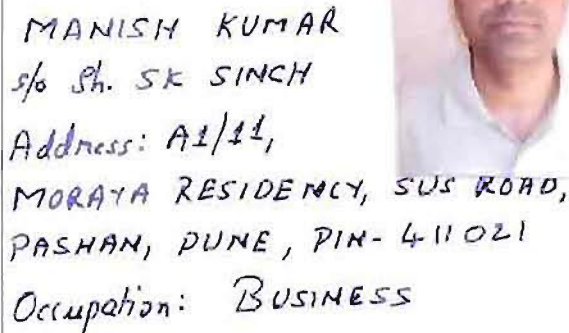 MANISH KUMAR
s/o Sh. SK SINGH
Address: A1/11,
MORAYA RESIDENCY, SUS ROAD,
PASHAN, PUNE, PIN- 411021
Occupation: BUSINESS